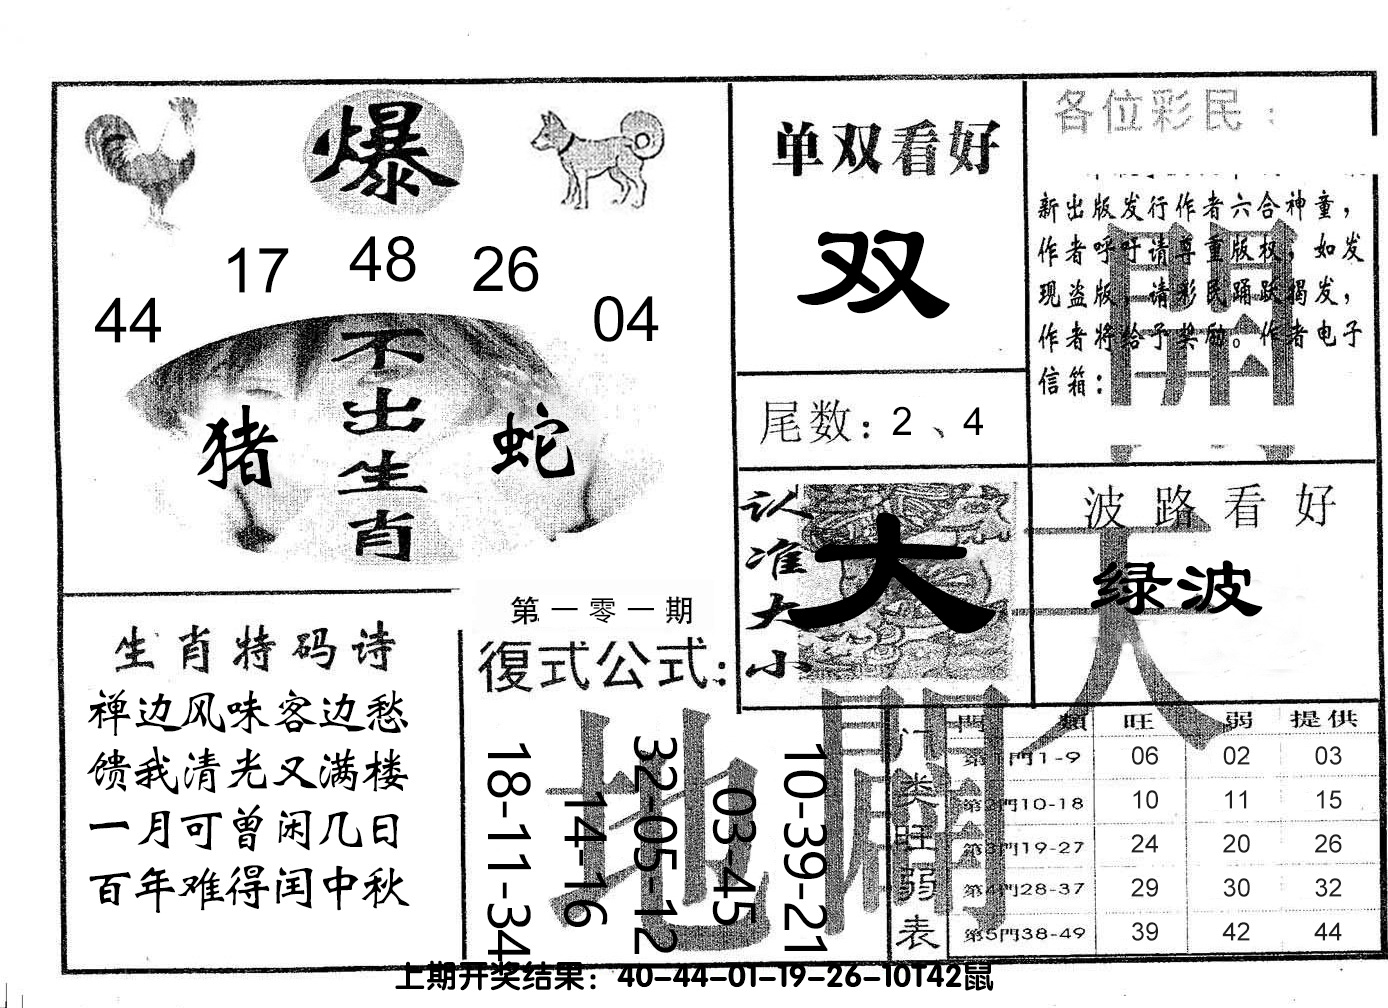 爆
17 48 26
44 04
不出生肖
猪 蛇
单双看好
双
尾数：2、4
各位彩民：
新出版发行作者六合神童，
作者呼吁请尊重版权，如发
现盗版，请彩民踊跃揭发，
作者将给予奖励。作者电子
信箱：
认准大小
大
波路看好
绿波
生肖特码诗
禅边风味客边愁
馈我清光又满楼
一月可曾闲几日
百年难得闰中秋
第一零一期
復式公式：
18-11-34
14-16
32-05-12
03-45
10-39-21
天
地
開
門类旺弱表
門類 旺 弱 提供
第1門1-9 06 02 03
第2門10-18 10 11 15
第3門19-27 24 20 26
第4門28-37 29 30 32
第5門38-49 39 42 44
上期开奖结果：40-44-01-19-26-10T42鼠